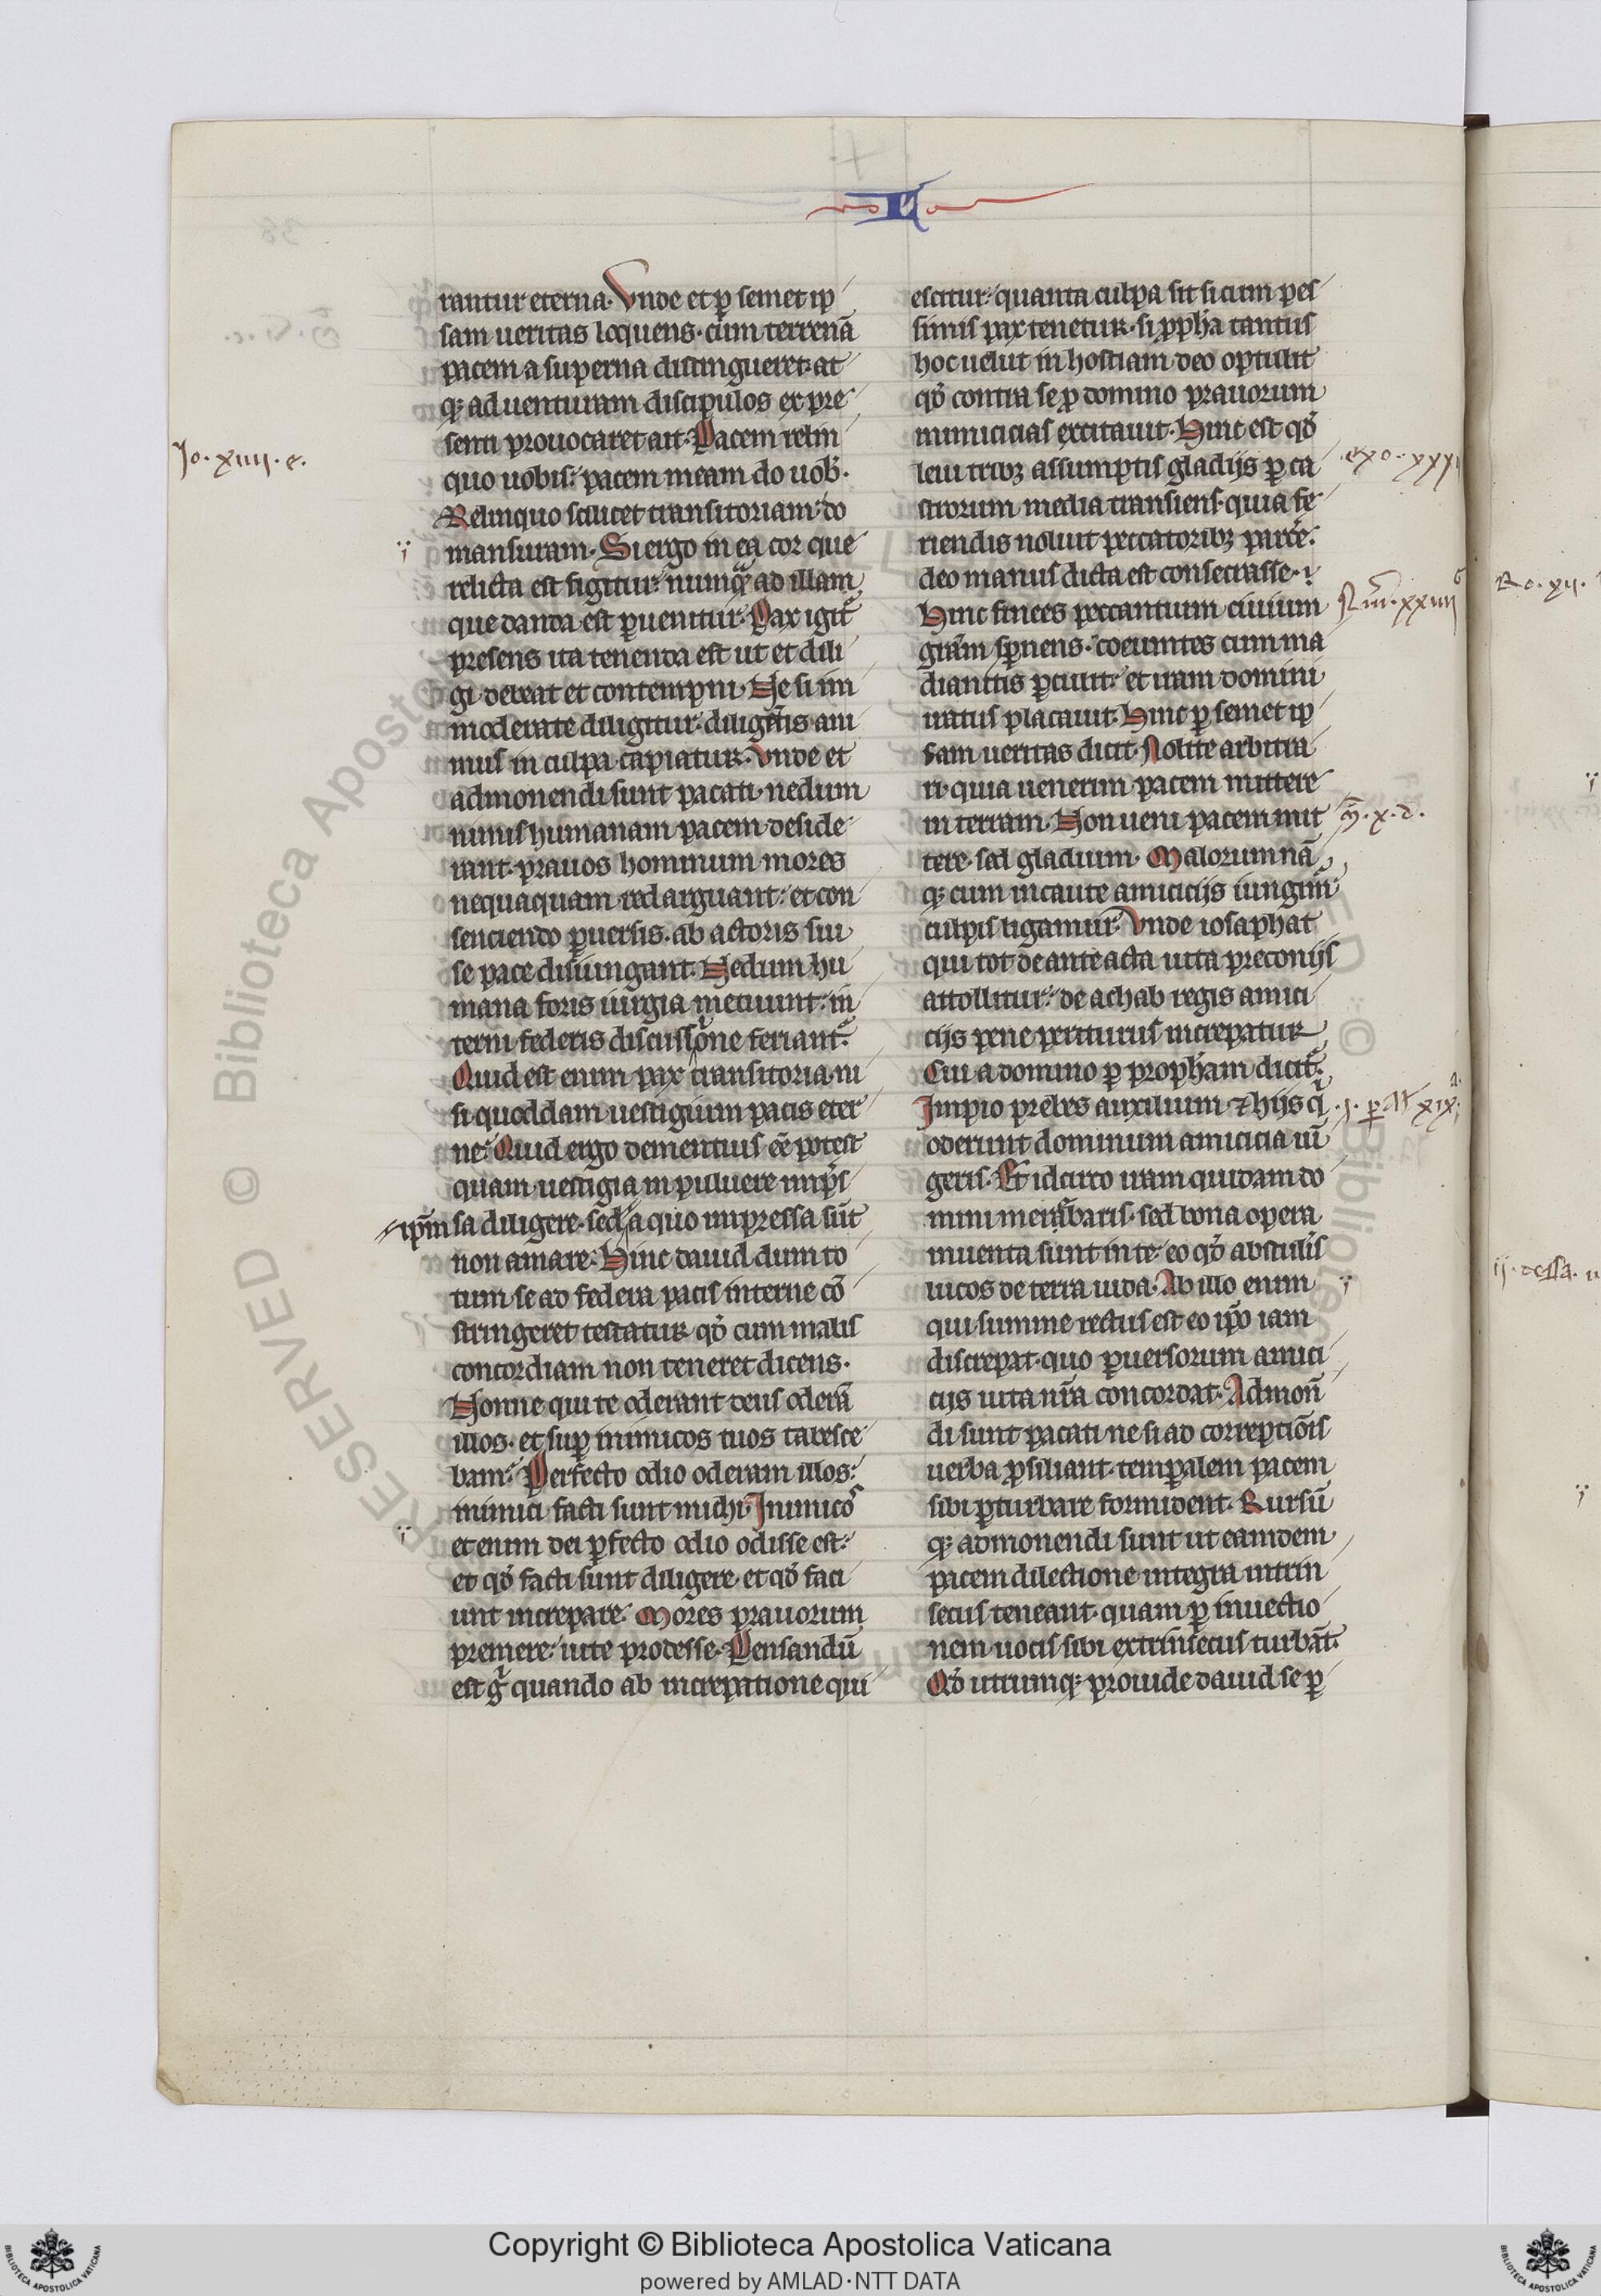 rantur eterna. Vnde et ꝑ semet ip
sam ueritas loquens. cum terrenā
pacem a superna distingueret. at
qꝫ ad uenturam discipulos ex pre
senti prouocaret ait. Pacem relin
quo uobis: pacem meam do uob̾.
Relinquo scilicet transitoriam. do
mansuram. Si ergo in ea cor que
relicta est figitur: numqᷓ ad illam
que danda est ꝑuenitur. Pax igit᷑
presens ita tenenda est ut et dili
gi debeat et contempni. Ne si im
moderate diligitur. diligēntis ani
mus in culpa capiatur. Vnde et
admonendi sunt pacati. ne dum
nimis humanam pacem deside
rant. prauos hominum mores
nequaquam redarguant: et con
senciendo ꝑuersis. ab actoris sui
se pace disiungant. Ne dum hu
mana foris iurgia metuunt: in
terni federis discussione feriant᷑.
Quid est enim pax transitoria. ni
si quoddam uestigium pacis eter
ne: Quid ergo dementius ēē potest
quam uestigia in puluere imp̄s
ip̄m sa diligere. sed a quo impressa sūt
non amare: Hinc dauid dum to
tum se ad federa pacis interne cō
stringeret testatur qđ cum malis
concordiam non teneret dicens.
Nonne qui te oderant deus oderā
illos. et suꝑ inimicos tuos tabesce
bam: Perfecto odio oderam illos:
inimici facti sunt michi. Inimicos
et enim dei ꝑfecto odio odisse est:
et qđ facti sunt diligere. et qđ faci
unt increpare. Mores prauorum
premere: uite prodesse. Pensandū
est gͥ quando ab increpatione qui
escitur: quanta culpa sit si cum pes
simis pax tenetur. si ꝓph̄a tantus
hoc uelut in hostiam deo optulit
qđ contra se ꝓ domino prauorum
inimicicias excitauit. Hinc est qđ
leui tribꝫ assumptis gladijs ꝑ ca
strorum media transiens. quia fe
riendis noluit peccatoribꝫ parcē̾.
deo manus dicta est consecrasse.
Hinc finees peccantium ciuium
grām sꝑnens. coeuntes cum ma
dianitis ꝑculit: et iram domini
iratus placauit. Hinc ꝑ semet ip
sam ueritas dicit. Nolite arbitra
ri. quia uenerim pacem mittere
in terram. Non ueni pacem mit
tere. sed gladium. Malorum nā
qꝫ cum incaute amicicijs iungim᷑
culpis ligamur. Vnde iosaphat
qui tot de ante acta uita preconijs
attollitur: de achab regis amici
cijs pene periturus increpatur
Cui a domino ꝑ proph̄am dicit᷑:
Impio prebes auxilium. ⁊ hijs qͥ
oderunt dominum amicicia iū
geris. Et idcirco iram quidam do
mini merebaris. sed bona opera
inuenta sunt in te: eo qđ abstulis̾
lucos de terra iuda. Ab illo enim
qui summe rectus est eo ip̄o iam
discrepat. quo ꝑuersorum amici
cijs uita nr̄a concordat. Admonē
di sunt pacati. ne si ad correptiōis
uerba ꝓsiliant. temꝑalem pacem
sibi ꝑturbare formident. Rursū
qꝫ admonendi sunt ut eamdem
pacem dilectione integra intrin
secus teneant. quam ꝑ inuectio
nem uocis sibi extrinsecus turbāt.
Qđ utrumqꝫ prouide dauid se ꝑ
Jo. xiiii. e.
exo. xxxi
Nūi. xxiiii
m̄. x. d.
.ij. ꝑ ar xix.
Ro. xii.
ij. tessa.
Copyright © Biblioteca Apostolica Vaticana
powered by AMLAD·NTT DATA
BIBLIOTECA APOSTOLICA VATICANA
BIBLIOTECA APOSTOLICA VATICANA